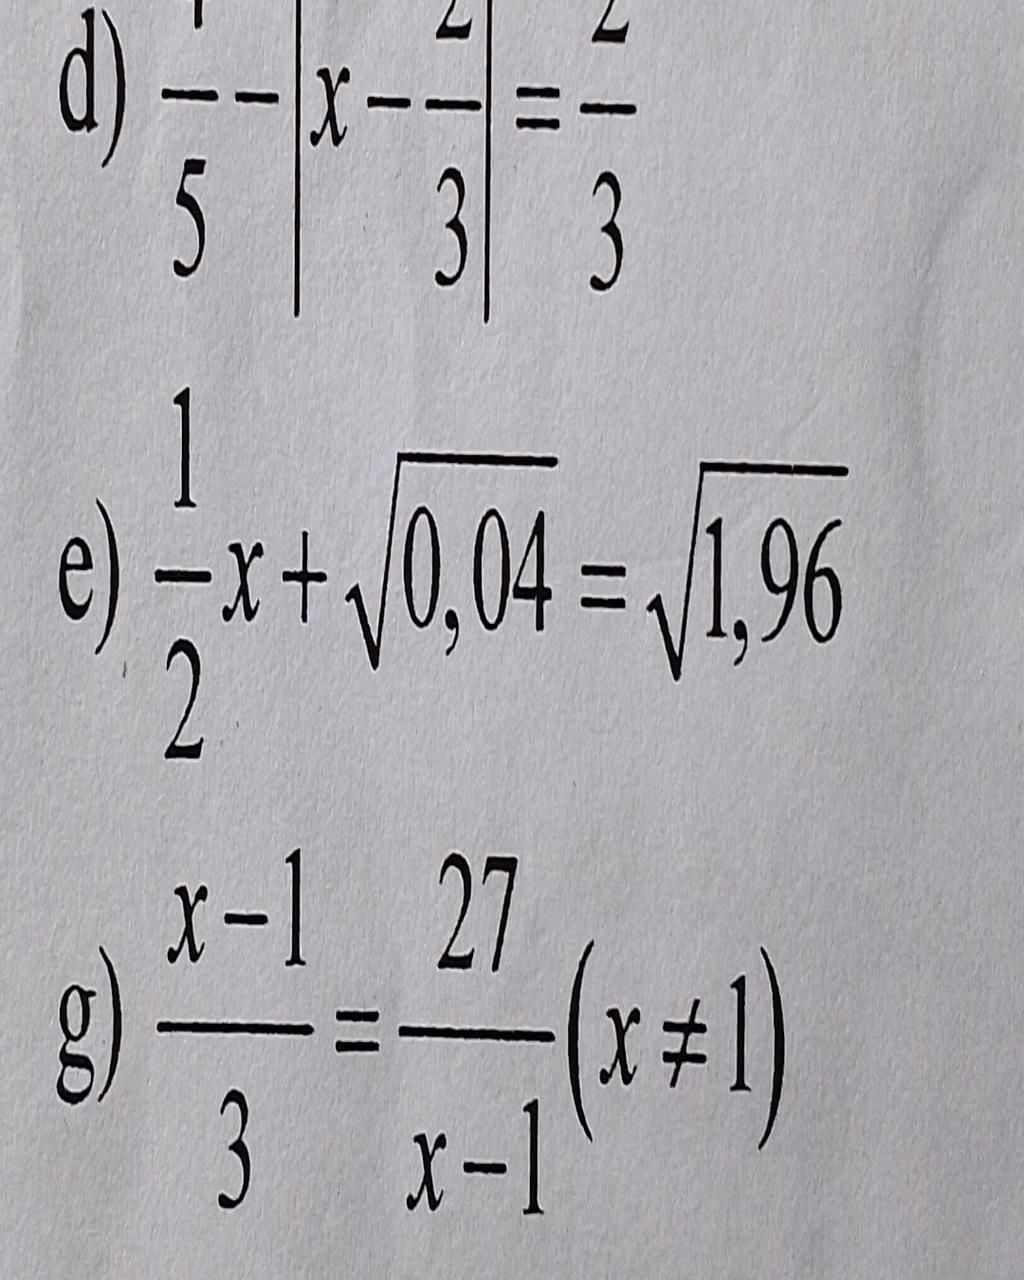 d) —/5 − |x − 2/3| = 2/3
e) 1/2 x + √0,04 = √1,96
g) (x−1)/3 = 27/(x−1) (x ≠ 1)